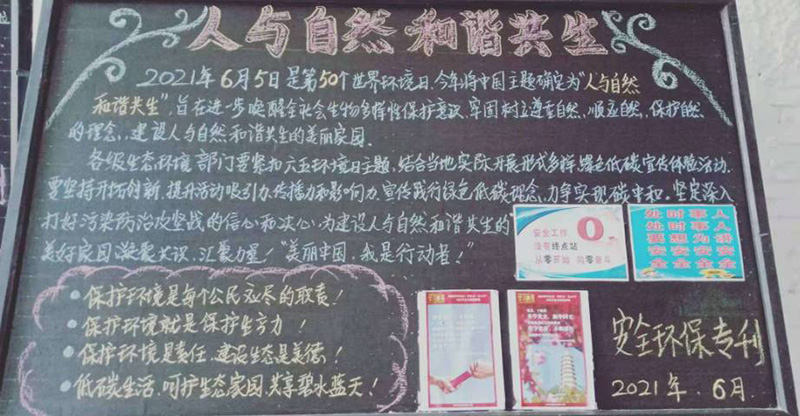 人与自然 和谐共生
2021年6月5日是第50个世界环境日,今年将中国主题确定为"人与自然
和谐共生",旨在进一步唤醒全社会生物多样性保护意识,牢固树立尊重自然、顺应自然、保护自然
的理念,建设人与自然和谐共生的美丽家园。
各级生态环境部门要紧扣六五环境日主题,结合当地实际,开展形式多样,绿色低碳宣传体验活动,
要坚持开拓创新,提升活动吸引力,传播力和影响力,宣传践行绿色低碳理念,力争实现碳中和,坚定深入
打好污染防治攻坚战的信心和决心,为建设人与自然和谐共生的
美好家园凝聚共识,汇聚力量!"美丽中国,我是行动者!"
安全工作
没有终点站
从零开始 向零奋斗
0
处时事人
处时事人
要想为讲
安安安安
全全全全
·保护环境是每个公民应尽的职责!
·保护环境就是保护生产力
·保护环境是责任,建设生态是美德!
·低碳生活,呵护生态家园,共享碧水蓝天!
安全环保专刊
2021年.6月.